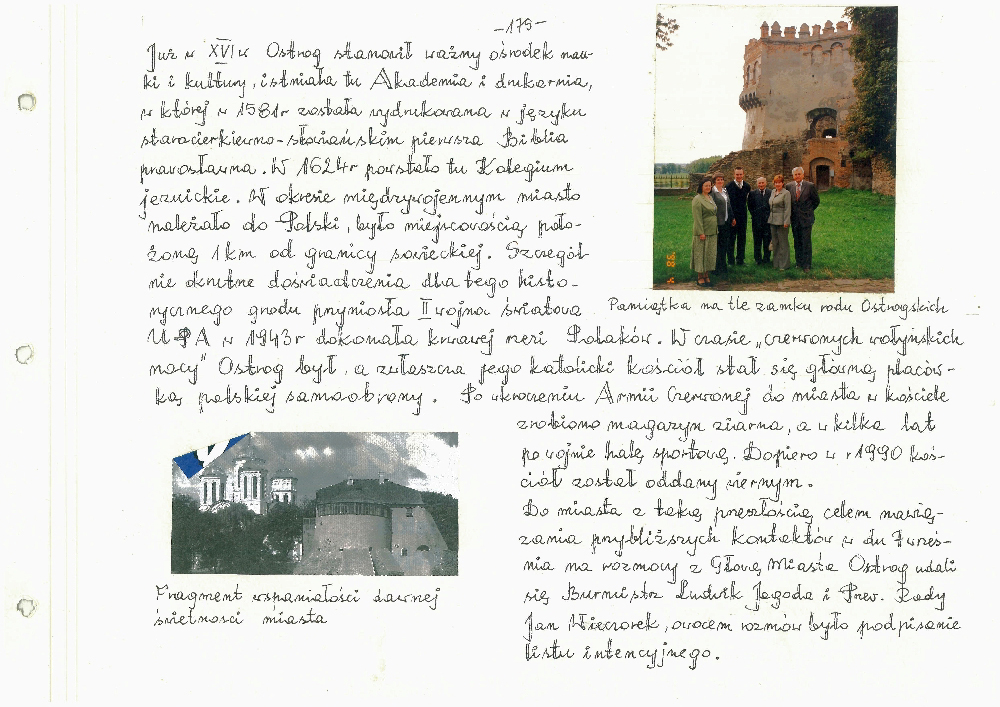 -175-
Już w XVI w Ostrog stanowił ważny ośrodek nau-
ki i kultury, istniała tu Akademia i drukarnia,
w której w 1581r została wydrukowana w języku
starocierkiewno-słowiańskim pierwsza Biblia
prawosławna. W 1624r powstało tu Kolegium
jezuickie. W okresie międzywojennym miasto
należało do Polski, było miejscowością poło-
żoną 1 km od granicy sowieckiej. Szczegół-
nie okrutne doświadczenia dla tego histo-
rycznego grodu przyniosła II wojna światowa
Pamiątka na tle zamku rodu Ostrogskich
UPA w 1943r dokonała krwawej rzezi Polaków. W czasie „czerwonych wołyńskich
nocy" Ostrog był, a zwłaszcza jego katolicki kościół stał się główną placów-
ką polskiej samoobrony. Po wkroczeniu Armii Czerwonej do miasta w kościele
zrobiono magazyn ziarna, a w kilka lat
po wojnie halę sportową. Dopiero w r 1990 koś-
ciół został oddany wiernym.
Do miasta z taką przeszłością celem nawią-
zania przybliższych kontaktów w dn 7 wrześ-
nia na rozmowy z Głową Miasta Ostrog udali
się Burmistrz Ludwik Jagoda i Przew. Rady
Jan Wieczorek, owocem rozmów było podpisanie
listu intencyjnego.
Fragment wspaniałości dawnej
świetności miasta